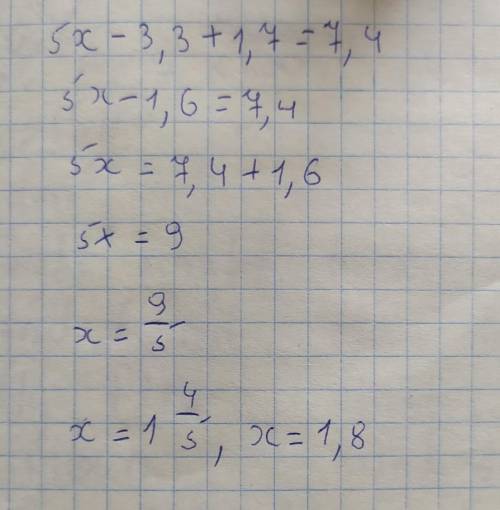 5x - 3,3 + 1,7 = 7,4
5x - 1,6 = 7,4
5x = 7,4 + 1,6
5x = 9
x = 9/5
x = 1 4/5, x = 1,8